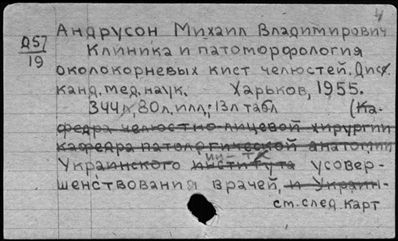 4
Д57
19
Андрусон Михаил Владимирович
Клиника и патоморфология
околокорневых кист челюстей. Дисс.
канд. мед. наук. Харьков, 1955.
344л, 80л. илл; 13л табл (Ка-
федра челюстно-лицевой хирургии
кафедра патологической анатомии
ин-та
Украинского института усовер-
шенствования врачей, и Украин-
см. след. карт